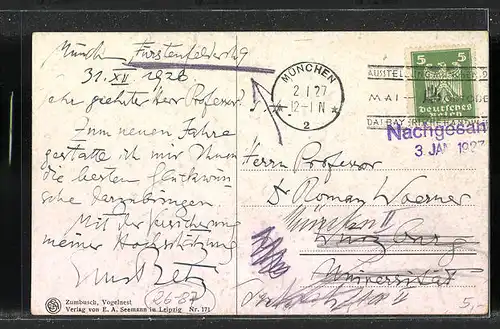 München Fürstenfelderstr 9
31. XII 1926
Sehr geehrter Herr Professor!
Zum neuen Jahre
gestatte ich mir Ihnen
die besten Glückwün-
sche darzubringen
Mit der Versicherung
meiner Hochschätzung
Zumbusch, Vogelnest
Verlag von E. A. Seemann in Leipzig Nr. 171
2687
MÜNCHEN
2.1.27
12-1 N
2
5 5
Deutsches
Reich
MAI -
Nachgesan
3. JAN 1927
Herrn Professor
Dr Roman Woerner
München II
Würzburg
Universität
5,-